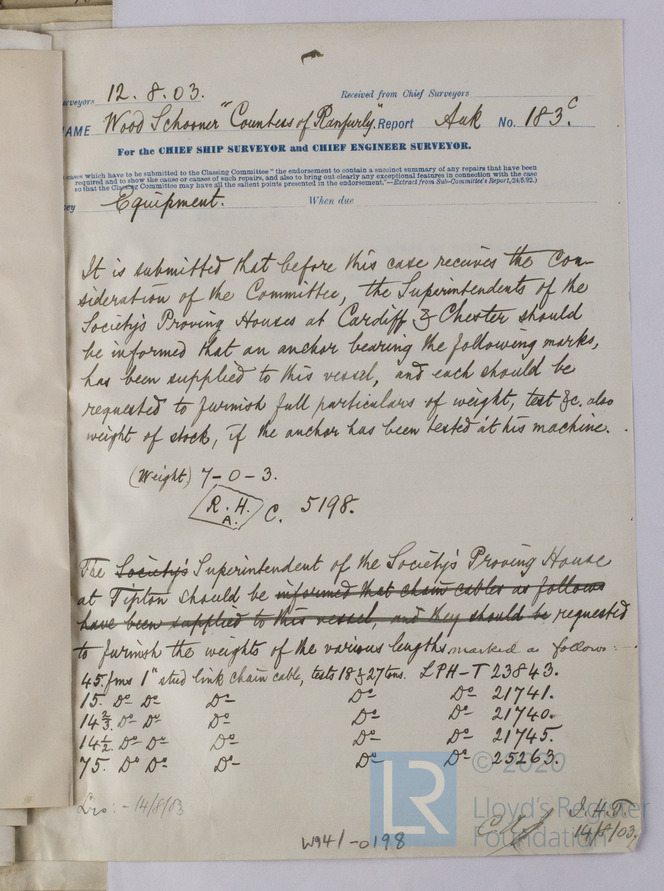 urveyors 12.8.03. Received from Chief Surveyors
AME Wood Schooner "Countess of Ranfurly". Report Auk No. 183c.
For the CHIEF SHIP SURVEYOR and CHIEF ENGINEER SURVEYOR.
cases which have to be submitted to the Classing Committee "the endorsement to contain a succinct summary of any repairs that have been
required and to show the cause or causes of such repairs, and also to bring out clearly any exceptional features in connection with the case
so that the Classing Committee may have all the salient points presented in the endorsement."—Extract from Sub-Committee's Report, (24/5/92.)
ey Equipment. When due
It is submitted that before this case receives the con-
sideration of the Committee, the Superintendents of the
Society's Proving Houses at Cardiff & Chester should
be informed that an anchor bearing the following marks,
has been supplied to this vessel, and each should be
requested to furnish full particulars of weight, test &c. also
weight of stock, if the anchor has been tested at his machine.
(Weight) 7-0-3.
R.H.
A. C. 5198.
The Society's Superintendent of the Society's Proving House
at Tipton should be informed that chain cables as follows
have been supplied to this vessel, and they should be requested
to furnish the weights of the various lengths marked as follows:-
45. fms 1" stud link chain cable, tests 18 & 27 tons. LPH-T 23843.
15. Do Do Do Do Do 21741.
14 2/3. Do Do Do Do Do 21740.
14 1/2. Do Do Do Do Do 21745.
75. Do Do Do Do Do 25263.
LR
© 2020
Lloyd's Register
Foundation
14/8/03
J.H.T.
14/8/03.
W941-0198